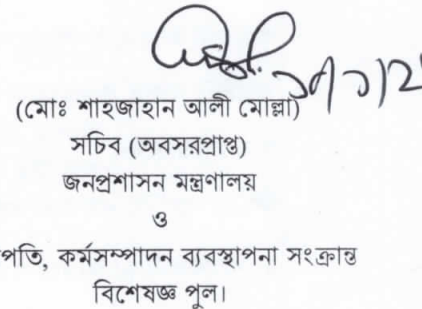 (মোঃ শাহজাহান আলী মোল্লা)
সচিব (অবসরপ্রাপ্ত)
জনপ্রশাসন মন্ত্রণালয়
ও
পতি, কর্মসম্পাদন ব্যবস্থাপনা সংক্রান্ত
বিশেষজ্ঞ পুল।